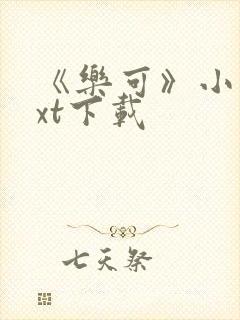 《樂可》小
xt下載
七天祭